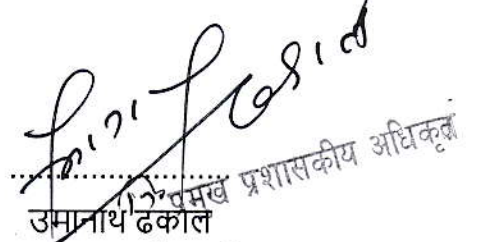 प्रमुख प्रशासकीय अधिकृत
उमानाथ ढकाल